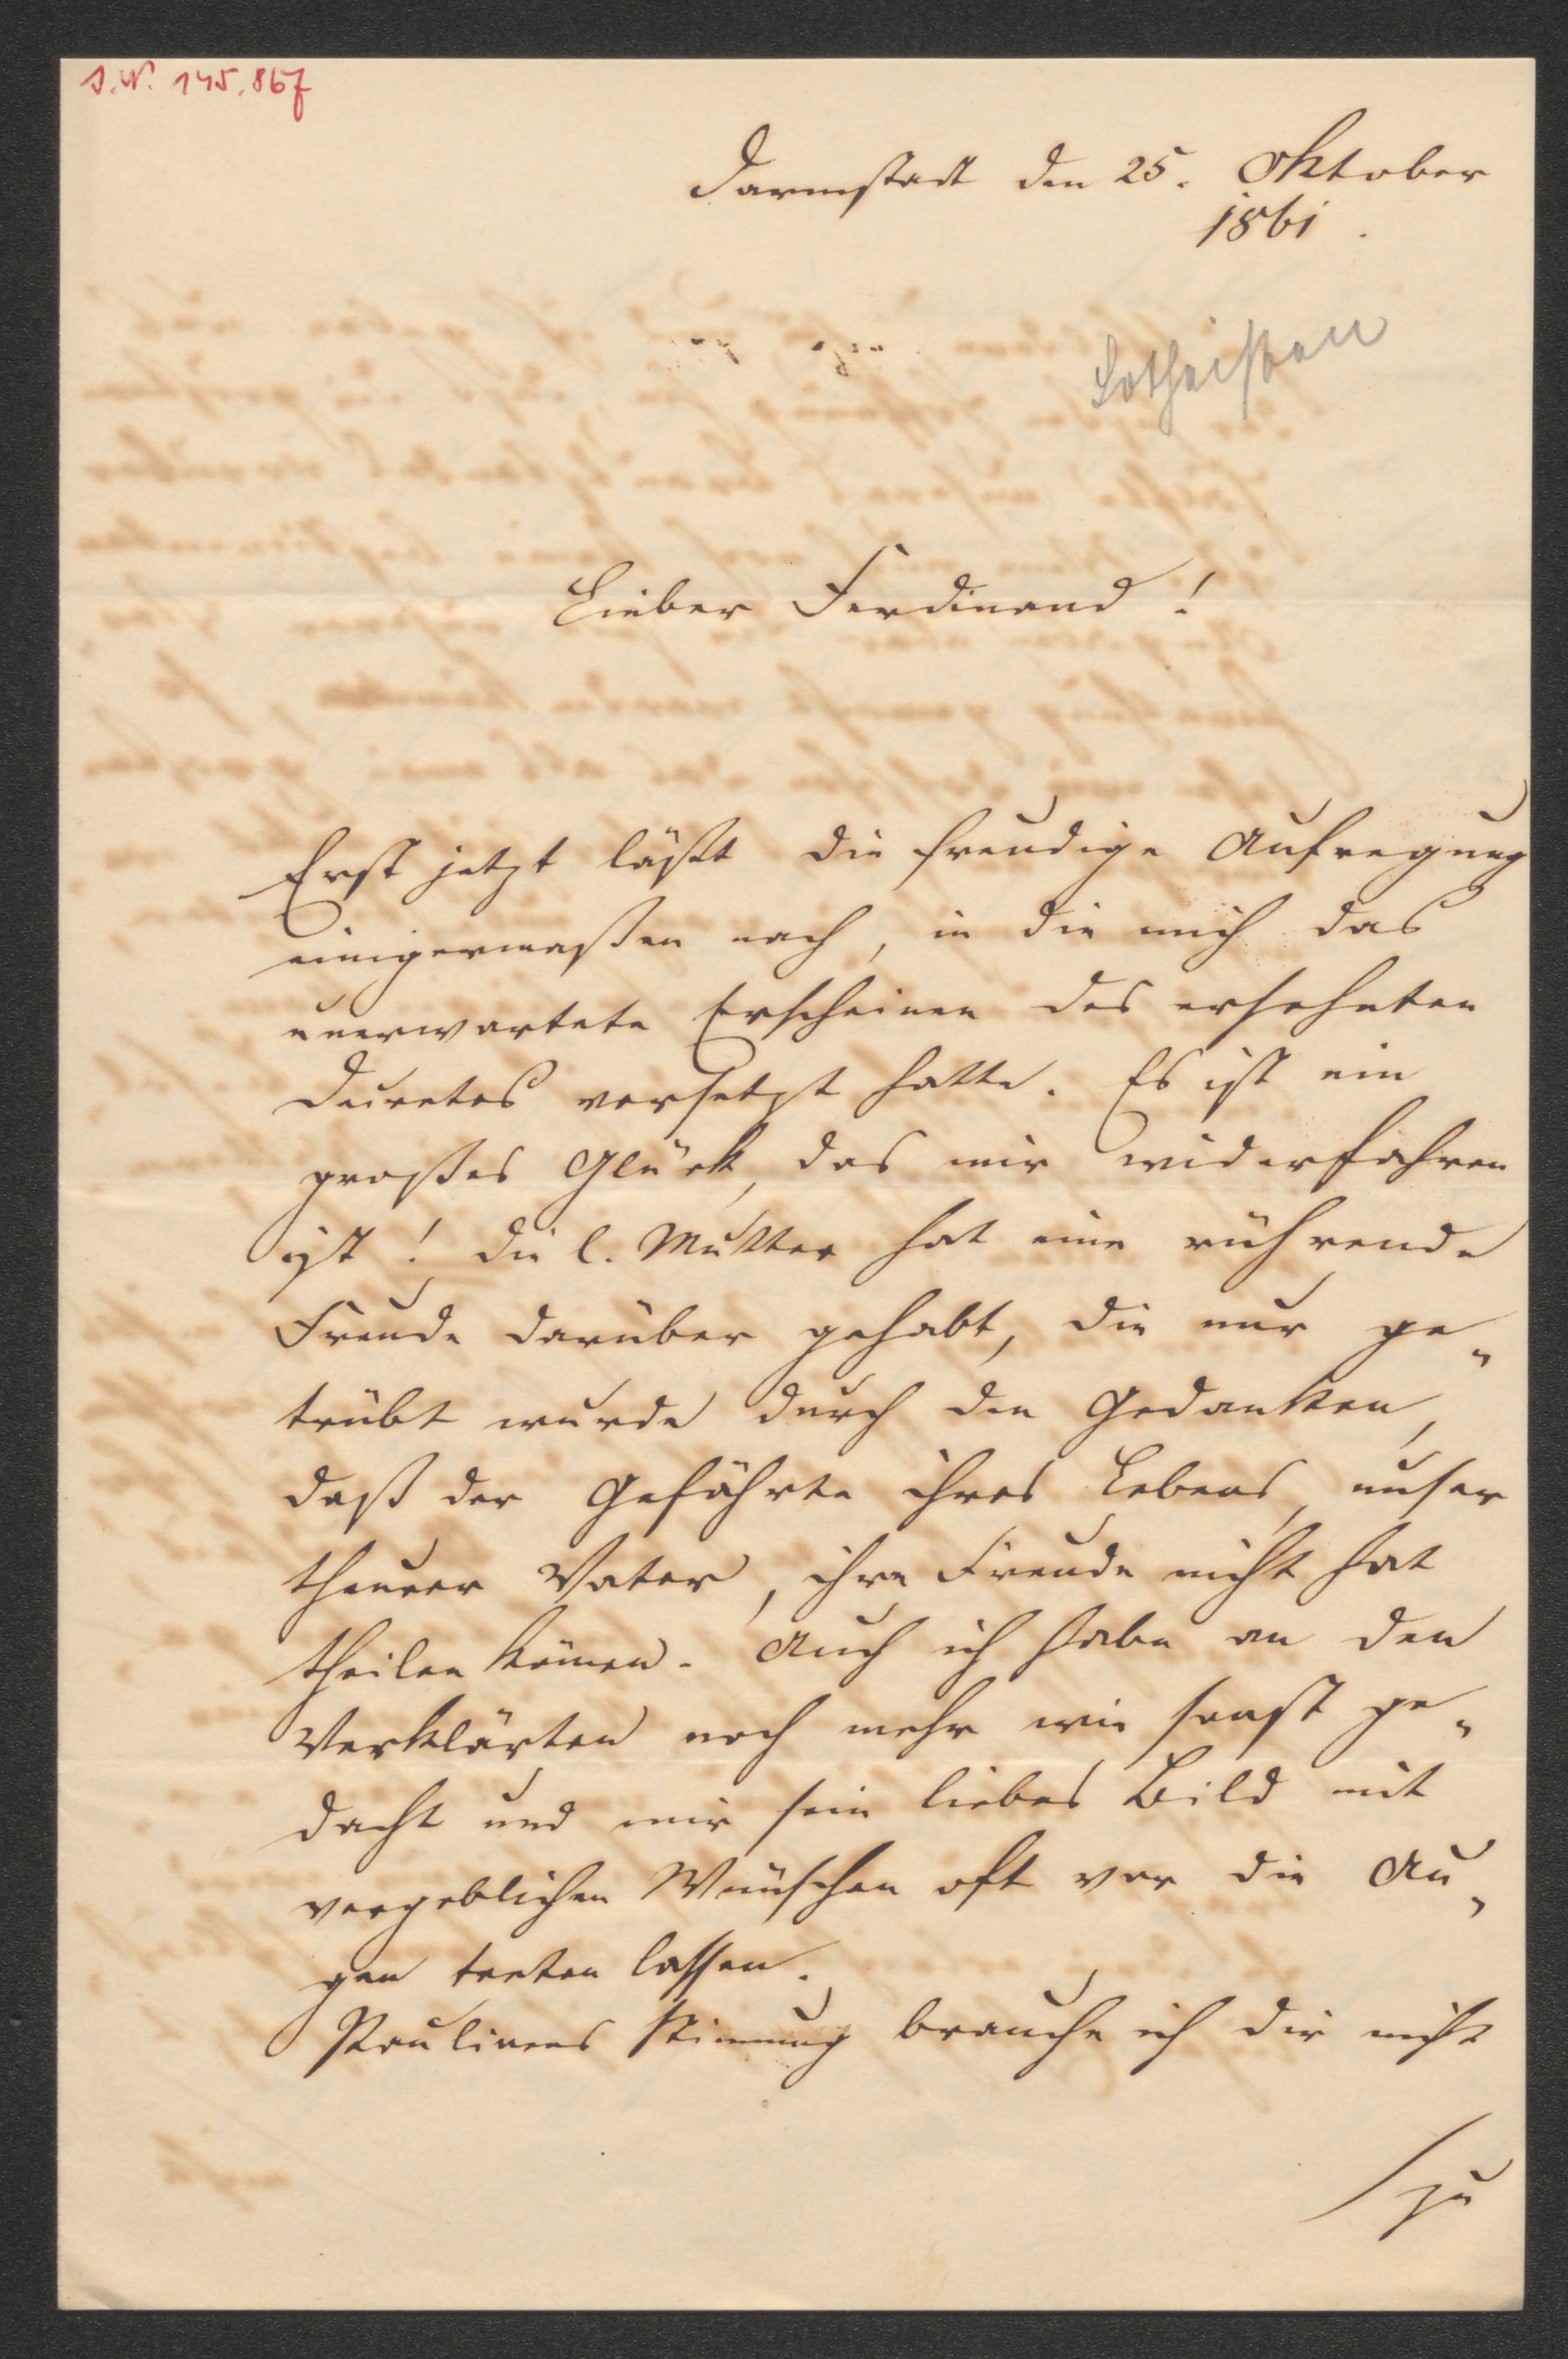 I.N. 145.867
Darmstadt den 25. Oktober
1861.
Lotheissen
Lieber Ferdinand!
Erst jetzt läßt die freudige Aufregung
einigermaßen nach, in die mich das
unerwartete Erscheinen des ersehnten
Decretes versetzt hatte. Es ist ein
großes Glück, das mir widerfahren
ist! Die l. Mutter hat eine rührende
Freude darüber gehabt, die nur ge„
trübt wurde durch den Gedanken,
daß der Gefährte ihres Lebens, unser
theurer Vater, ihre Freude nicht hat
theilen können. Auch ich habe an den
Verklärten noch mehr wie sonst ge„
dacht und mir sein liebes Bild mit
vergeblichen Wünschen oft vor die Au„
gen treten lassen.
Paulinens Stimmung brauche ich dir nicht
/zu